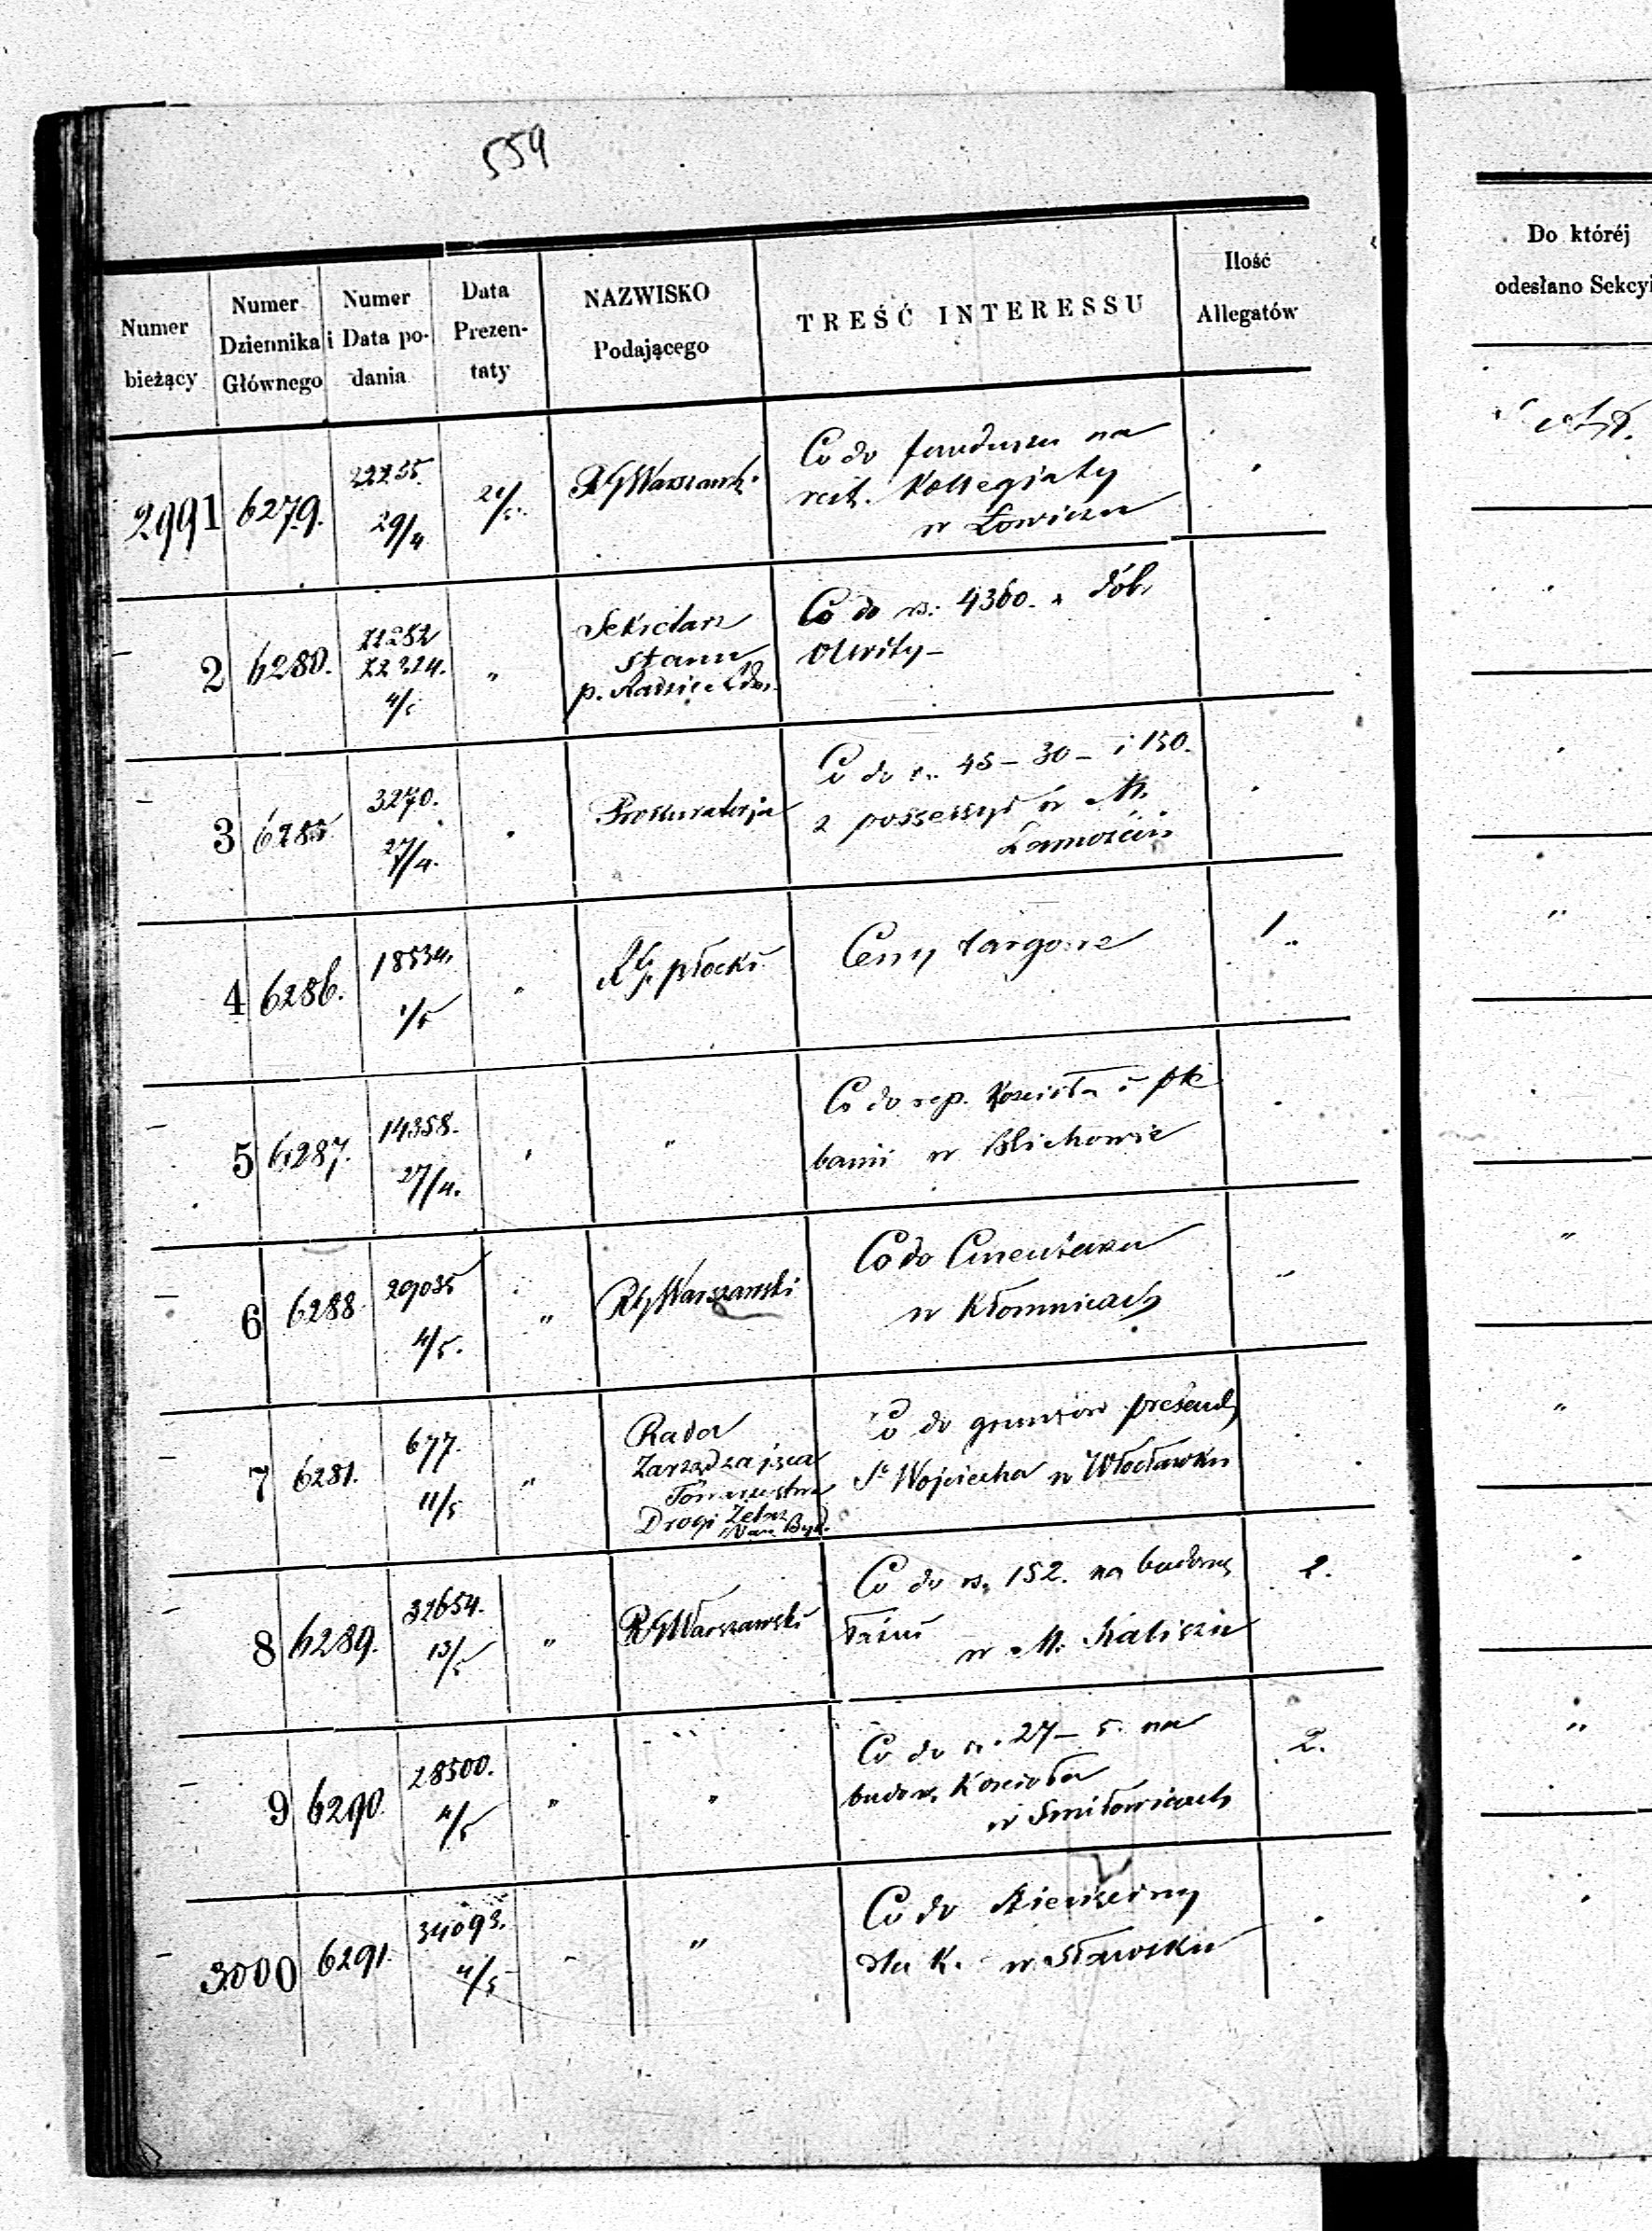 554
Numer bieżący
Numer Dziennika Głównego
Numer i Data podania
Data Prezentaty
NAZWISKO Podającego
TREŚĆ INTERESSU
Ilość Allegatów
Do któréj
odesłano Sekcyi
2991 6279. 22235. 29/4 21/5. RG Warszawsk. Co do funduszu na
reit. Kollegiaty
w Łowiczu
2 6280. 4/5 " Sekretarz Co do rs: 4360. z dób.
Stanu
p.
3 6285. 3270. 27/4. Prokuratorja Co do r. 45 – 30 – i 150.
z possessyi w M.
Zamościu
4 6286. 18534. 1/5 " RG płocki Ceny targowe 1
5 6287. 14358. 27/4. " " Co do rep. Kościoła i ple
banii w Blichowie
6 6288. 29035 4/5. " RG Warszawski Co do Cmentarza
w Kłomnicach
7 6281. 677. 11/5 " Rada Co do gruntów
Zarządzająca
Towarzystwa Sº Wojciecha w Włocławku
Drogi Żelaz.
War. Byd.
8 6289. 32654. 13/5 " RG Warszawski Co do rs. 152. na budowę 2.
łaźni
w M. Kaliszu
9 6290. 28500. 4/5 " " Co do r. 27 – 5. na 2.
budow. Kościoła
w Smiłowicach
3000 6291. 34093. 4/5 " " Co do
dla K. w Sławsku